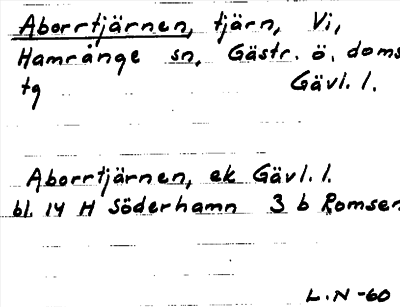 Aborrtjärnen, tjärn, Vi,
Hamrånge sn, Gästr. ö. doms
tg Gävl. l.
Aborrtjärnen, ek Gävl. l.
bl. 14 H Söderhamn 3 b Romsen
L.N -60